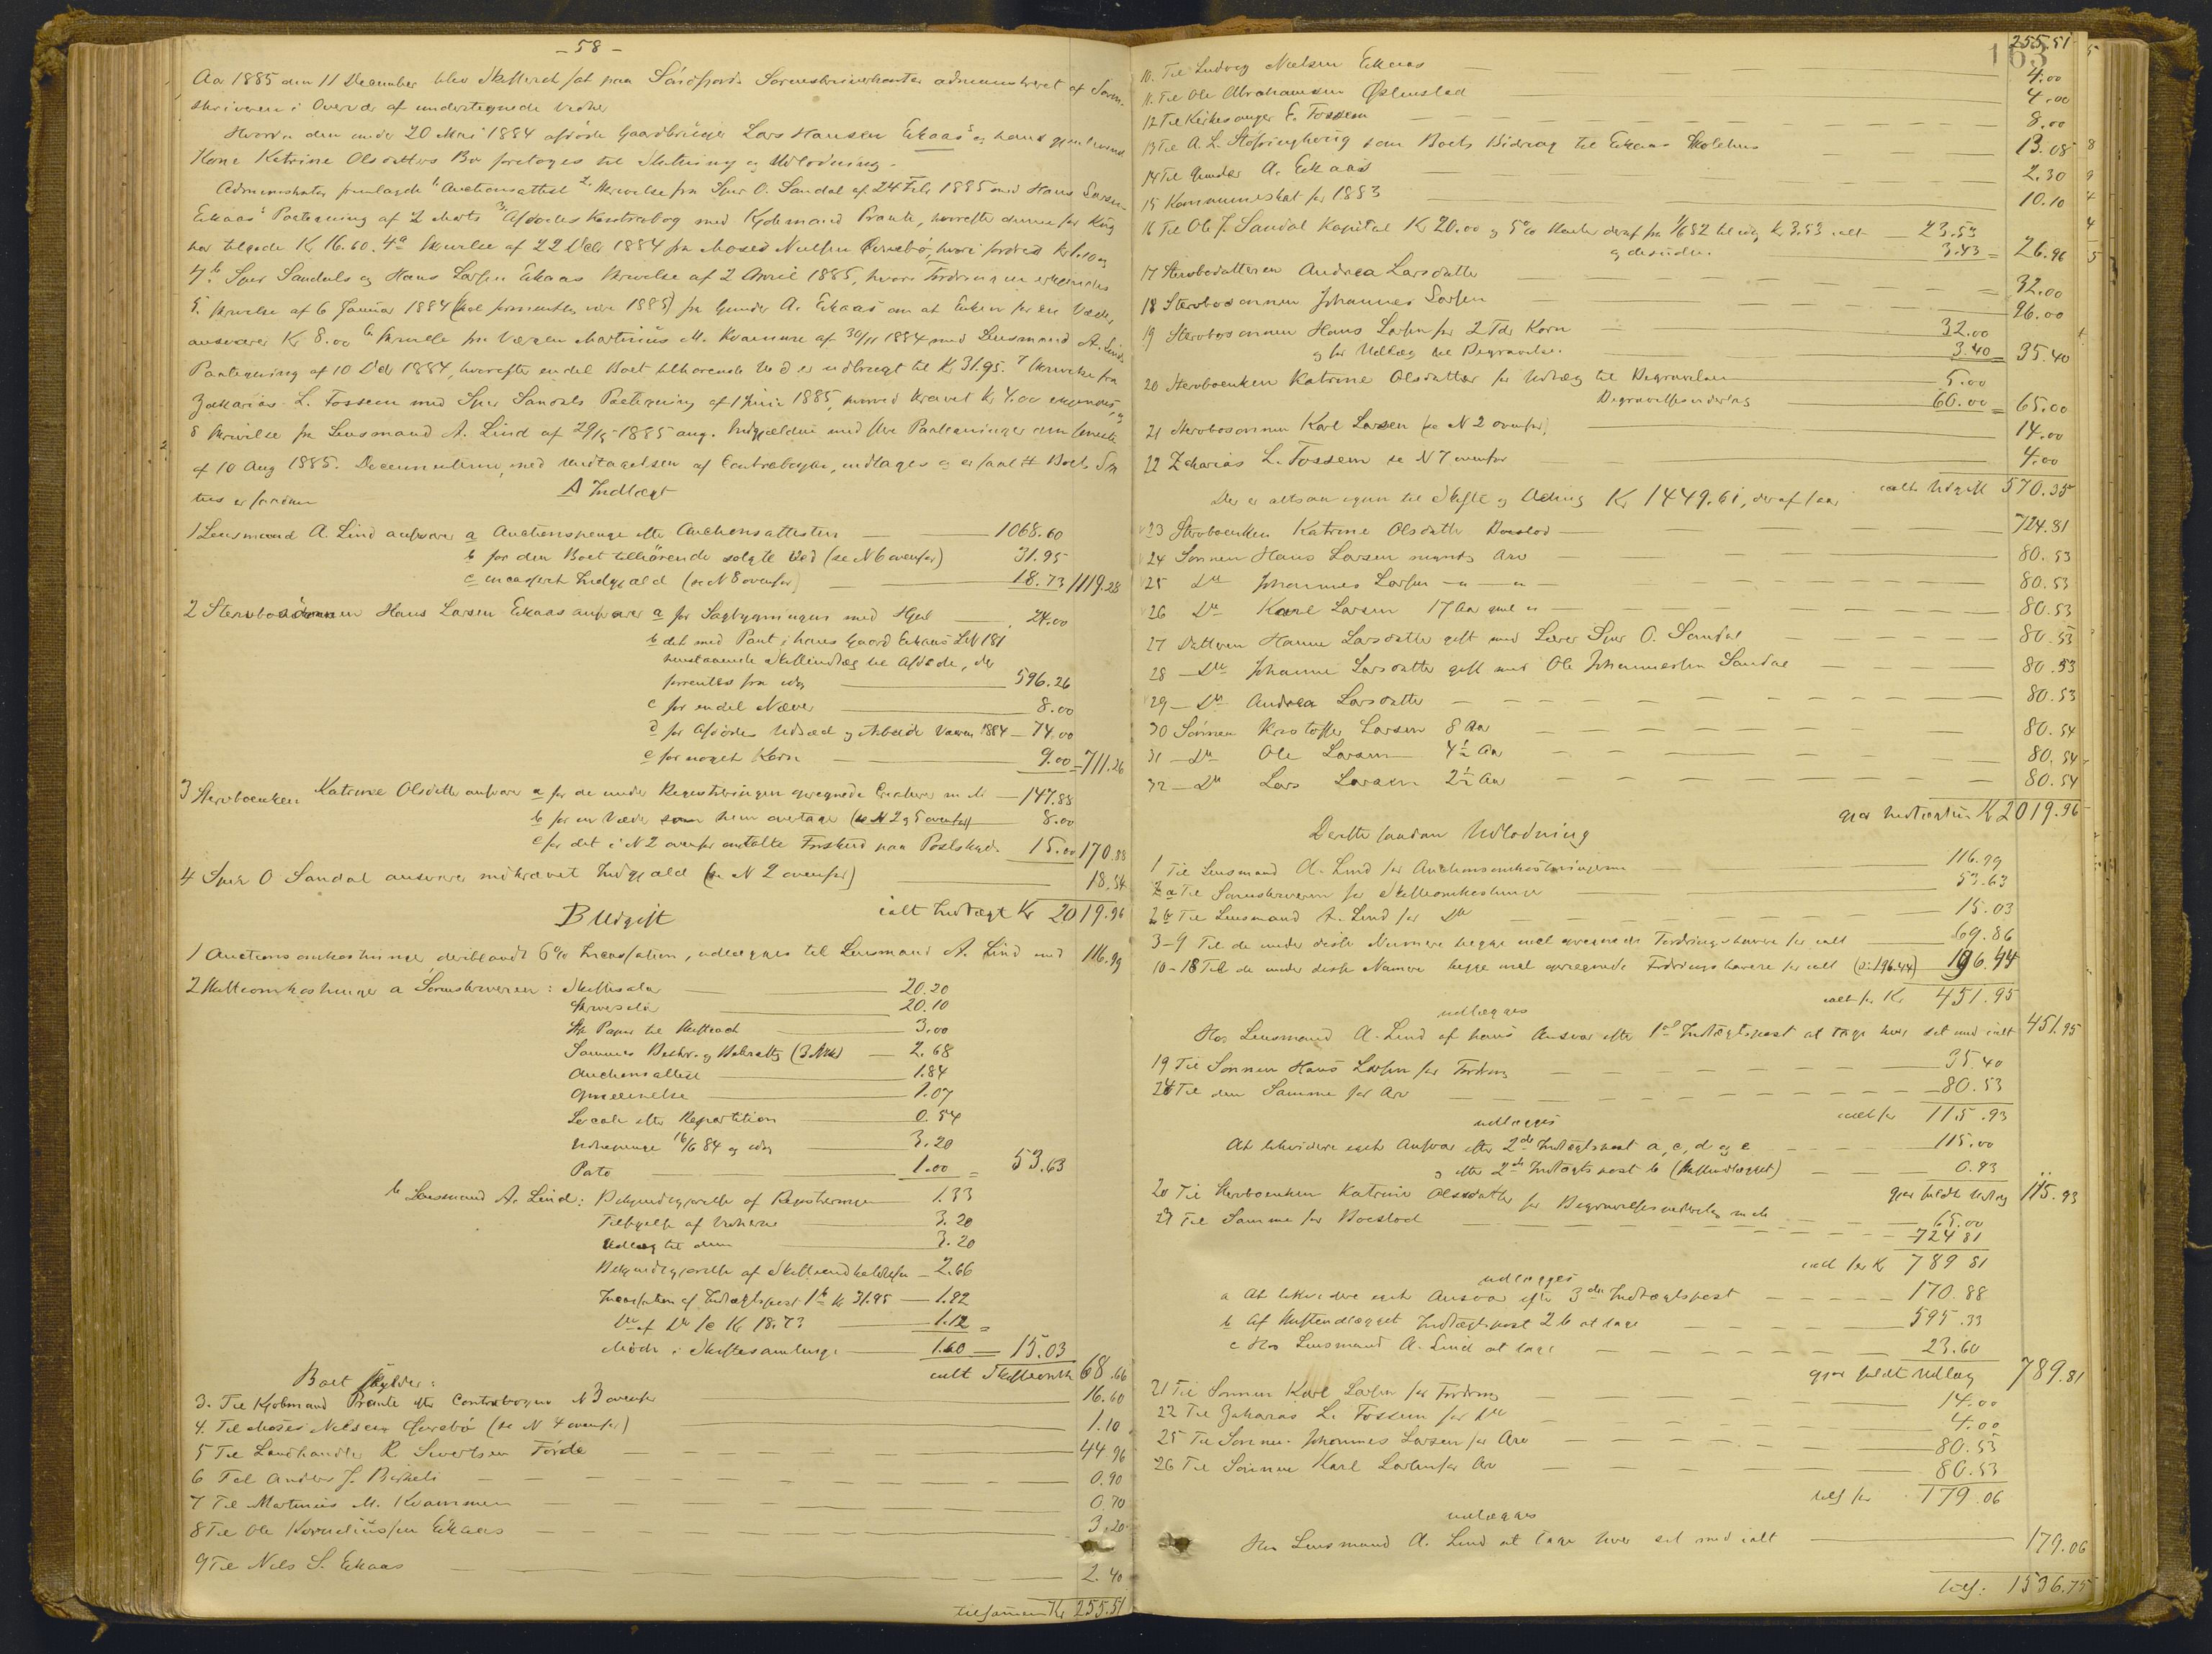 - 58 -
Aar 1885 den 11 December blev Skifteret sat paa Söndfjords Sorenskriverkontor administreret af Soren-
skriveren i Overvær af undertegnede Vidner
Hvorda den under 20 Mai 1884 afdöde Gaardbruger Lars Hansen Eikaas og hans gjenlevende
Kone Katrine Olsdatters Bo foretoges til Slutning og Udlodning.
Administrator fremlagde 1, Auctionsattest 2, Skrivelse fra Sjur O. Sandal af 24 Febr 1885 med Hans Larsen
Eikaas' Paategning af 2 Marts 3, Afdödes Kontrabog med Kjøbmand Prante, hvorefter denne for Krav
har tilgode Kr 16.60. 4a Skrivelse af 22 Dcbr 1884 fra Moses Nielsen hvori fordres Kr 1.10 og
4b Sjur Sandals og Hans Larsen Eikaas Skrivelse af 2 April 1885, hvori Fordringen erkjendes
5. Skrivelse af 6 Januar 1884 (skal formentlig være 1885) fra Gunder A. Eikaas om at Enken for en Væder
ansvarer Kr 8.00 6. Skrivelse fra Værgen Martinus M. Kvammen af 30/11 1884 med Lensmand A. Linds
Paategning af 10 Dcbr 1884, hvorefter endel Boet tilhørende Ved er udbragt til Kr 31.95. 7 Skrivelse fra
Zakarias L. Fossem med Sjur Sandals Paategning af 1 Juni 1885, hvorved Kravet Kr 4.00 erkjendes, og
8 Skrivelse fra Lensmand A. Lind af 29/5 1885 ang. Indgjælden med flere Paategninger den seneste
af 10 Aug 1885. Documenterne, med Undtagelse af Contrabogen, indtages og er saalt Boets Sta
tus er saadan
A Indtægt
1 Lensmand A. Lind ansvarer a Auctionspenge efter Auctionsattesten 1068.60
b for den Boet tilhörende solgte Ved (se N 6 ovenfor) 31.95
c incasseret Indgjæld (se N 8 ovenfor) 18.73 1119.28
2 Stervbosönnen Hans Larsen Eikaas ansvarer a for Sagbygningen med Hjul 24.00
b det med Pant i hans Gaard Eikaas LN 181
henstaaende Skifteudlæg til Afdøde, der
forrentes fra idag 596.26
c for endel Næver 8.00
d for Afdödes Udsæd og Arbeide Vaaren 1884 74.00
e for noget Korn 9.00 = 711.26
3 Stervboenken Katrine Olsdatter ansvarer a for de under Registreringen opregnede Creaturer m. M. 147.88
b for en Væder som hun overtager (se N 2 og 5 ovenfor) 8.00
c for det i N 2 ovenfor omtalte Forskud paa Postskyds 15.00 170.88
4 Sjur O Sandal ansvarer indkrævet Indgjæld (se N 2 ovenfor) 18.54
ialt Indtægt Kr 2019.96
B Udgift
1 Auctionsomkostninger deriblandt 6% Incassation, udlægges til Lensmand A. Lind med 116.99
2 Skifteomkostninger a Sorenskriveren: Skiftesalær 20.20
Skrivesalær 20.10
St. Papir til Skifteact 3.00
Sammes Beskr. og Bekræftg (3 Ark) 2.68
Auctionsattest 1.84
Omsendelse 1.07
Locale efter Repartition 0.54
Vidnepenge 16/6 84 og idag 3.20
Porto 1.00 = 53.63
b Lensmand A. Lind: Bekjendtgjørelse af Registreringen 1.33
Tilsigelse af Vidnerne 3.20
Udlæg til dem 3.20
Bekjendtgjørelse af Skiftesamlinger 2.66
Incassation af Indtægtspost 1b Kr 31.95 1.92
Do af Do 1c Kr 18.73 1.12 =
Möde i Skiftesamlinge 1.60 = 15.03
ialt Skifteomk 68.66
Boet skylder:
3. Til Kjøbmand Prante efter Contrabogen N 3 ovenfor 16.60
4. Til Moses Nielsen (se N 4 ovenfor) 1.10
5 Til Landhandler R. Sivertsen Förde 44.96
6 Til Anders J. Birkeli 0.90
7 Til Martinus M. Kvammen 0.70
8 Til Ole Korneliussen Eikaas 3.20
9 Til Nils S. Eikaas 2.40
tilsammen Kr 255.51
163
255.51
10. Til Ludvig Nielsen Eikaas 4.00
11. Til Ole Abrahamsen Østenstad 4.00
12 Til Kirkesanger E. Fossem 8.00
13 Til A. L. som Boets Bidrag til Eikaas Skolehus 13.08
14 Til Gunder A. Eikaas 2.30
15 Kommuneskat for 1883 10.10
16 Til Ole J. Sandal Kapital Kr 20.00 og 5% Renter deraf fra 1/6 82 til idag Kr 3.53 ialt 23.53
og desuden 3.43 = 26.96
17 Stervbodatteren Andrea Larsdatter 32.00
18 Stervbosönnen Johannes Larsen 96.00
19 Stervbosönnen Hans Larsen for 2 Tdr Korn 32.00
og for Udlæg til Begravelse 3.40 = 35.40
20 Stervboenken Katrine Olsdatter for Udlæg til Begravelsen 5.00
Begravelsesvederlag 60.00 = 65.00
21 Stervbosönnen Karl Larsen (se N 2 ovenfor) 14.00
22 Zakarias L. Fossem se N 7 ovenfor 4.00
ialt Udgift 570.35
Der er altsaa igjen til Skifte og Deling Kr 1449.61, deraf faar
23 Stervboenken Katrine Olsdatter Boeslod 724.81
24 Sönnen Hans Larsen myndig Arv 80.53
25 Do Johannes Larsen - " - " - 80.53
26 Do Karl Larsen 17 Aar gml " 80.53
27 Datteren Hanne Larsdatter gift med Lærer Sjur O. Sandal 80.53
28 - Do Johanne Larsdatter gift med Ole Johannessen Sandal 80.53
29 - Do Andrea Larsdatter 80.53
30 Sönnen Kristoffer Larsen 8 Aar 80.54
31 - Do Ole Larsen 4½ Aar 80.54
32 - Do Lars Larsen 2½ Aar 80.54
gjør Indtægten Kr 2019.96
Derefter saadan Udlodning
1 Til Lensmand A. Lind for Auctionsomkostningerne 116.99
2 a Til Sorenskriveren for Skifteomkostninger 53.63
2 b Til Lensmand A. Lind for Do 15.03
3-9 Til de under disse Numere begge incl opregnede Fordringshavere for ialt 69.86
10-18 Til de under disse Numere begge incl opregnede Fordringshavere for ialt (o: 196.44) 196.44
ialt for Kr 451.95
udlægges
Hos Lensmand A. Lind af hans Ansvar efter 1ste Indtægtspost at tage hver sit med ialt 451.95
19 Til Sönnen Hans Larsen for Fordring 35.40
24 Til den Samme for Arv 80.53
ialt for 115.93
udlægges
At likvidere eget Ansvar efter 2den Indtægtspost a, c, d og e 115.00
og efter 2den Indtægtspost b (Skifteudlægget) 0.93
gjør fuldt Udlæg 115.93
20 Til Stervboenken Katrine Olsdatter for Begravelsesvederlag m. M. 65.00
23 Til Samme for Boeslod 724.81
ialt for Kr 789.81
udlægges
a At likvidere eget Ansvar efter 3die Indtægtspost 170.88
b Af Skifteudlægget Indtægtspost 2 b at tage 595.33
c Hos Lensmand A. Lind at tage 23.60
gjør fuldt Udlæg 789.81
21 Til Sönnen Karl Larsen for Fordring 14.00
22 Til Zakarias L. Fossem for Do 4.00
25 Til Sönnen Johannes Larsen for Arv 80.53
26 Til Sönnen Karl Larsen for Arv 80.53
tils for 179.06
udlægges
Hos Lensmand A. Lind at tage hver sit med ialt 179.06
tils: 1536.75